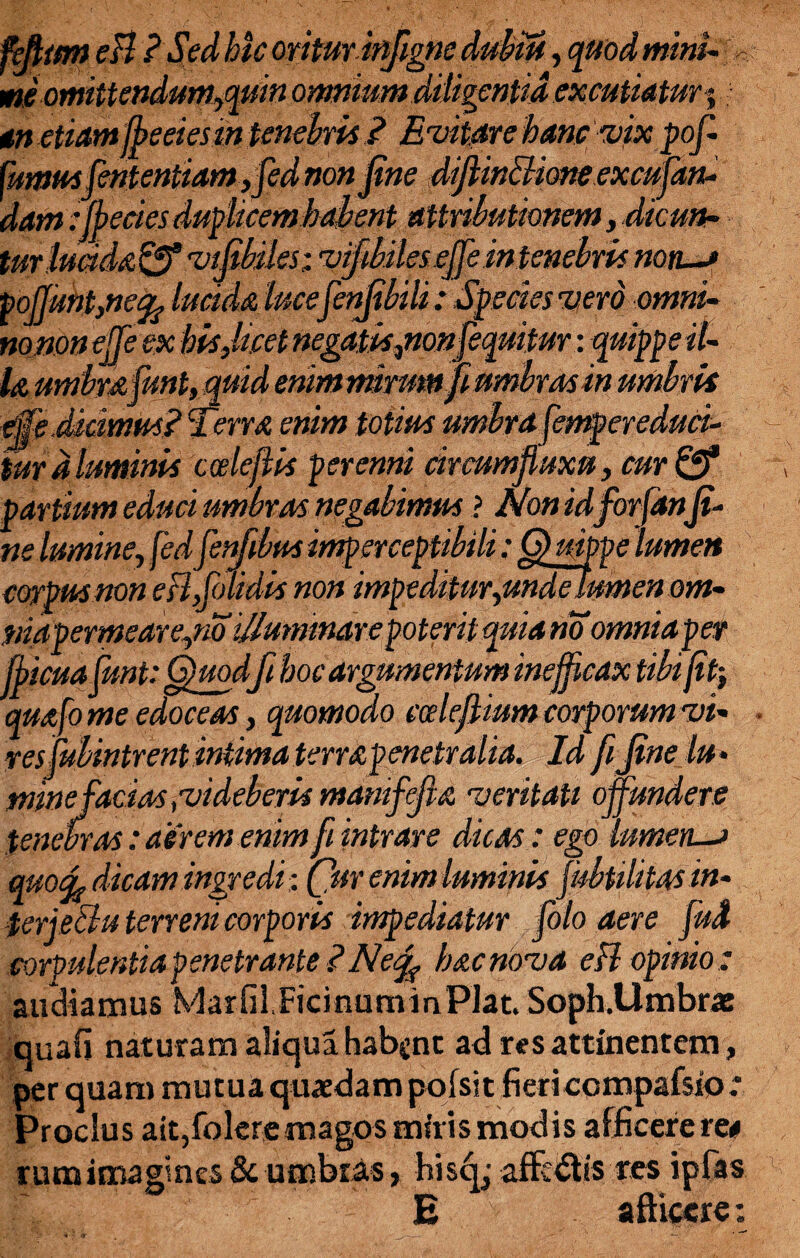 feſtum eſt ? Sed hîc oritur inſigne dubiũ, quod mini-
mè omittendum, quin omnium diligentiâ excutiatur;
an etiam ſpecies in tenebris ? Evitare hanc vix poſ-
ſumus ſententiam, ſed non ſine diſtinctione excuſan-
dam : ſpecies duplicem habent attributionem, dicun-
tur lucidæ & viſibiles; viſibiles eſſe in tenebris non
poſſunt, neq; lucidæ luce ſenſibili : Species verò omni-
no non eſſe ex his, licet negatis, non ſequitur : quippe il-
læ umbræ ſunt, quid enim mirum ſi umbras in umbris
eſſe dicimus? Terræ enim totius umbra ſemper educi-
tur à luminis cœleſtis perenni circumfluxu, cur &
partium educi umbras negabimus ? Non id forſan ſi-
ne lumine, ſed ſenſibus imperceptibili : Quippe lumen
corpus non eſt, ſolidis non impeditur, unde lumen om-
nia permeare, nō illuminare poterit quia nō omnia per
ſpicua ſunt: Quod ſi hoc argumentum inefficax tibi ſit;
quæſo me edoceas, quomodo cœleſtium corporum vi-
res ſubintrent intima terræ penetralia. Id ſi ſine lu-
mine facias, videberis manifeſtæ veritati offundere
tenebras : aërem enim ſi intrare dicas : ego lumen
quoq; dicam ingredi : Cur enim luminis ſubtilitas in-
terjectu terreni corporis impediatur ſolo aere ſuâ
corpulentia penetrante ? Neq; hæc nova eſt opinio :
audiamus Marſil. Ficinum in Plat. Soph. Umbræ
quaſi naturam aliquā habent ad res attinentem,
per quam mutua quædam poſsit fieri compaſsio :
Proclus ait, ſolere magos miris modis afficere re-
rum imagines & umbras, hisq; affectis res ipſas
E afficere: